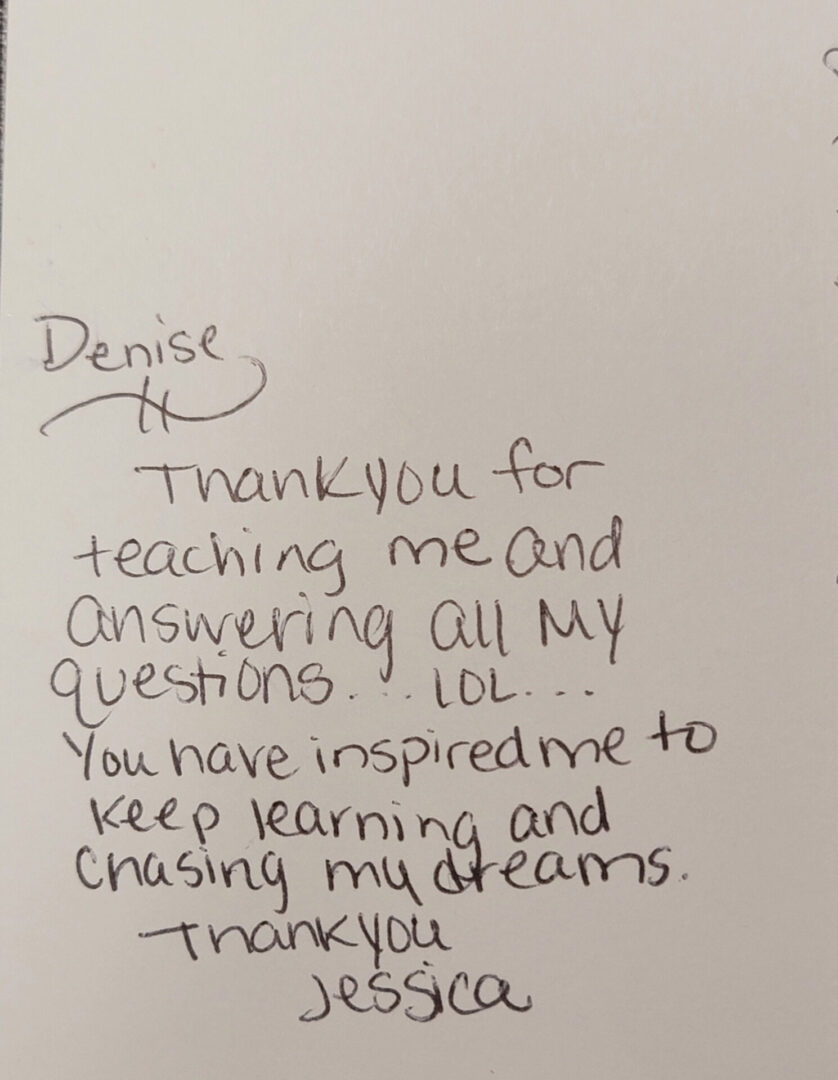 Denise
Thankyou for
teaching me and
answering all My
questions... LOL...
You have inspired me to
keep learning and
chasing my dreams.
Thankyou
Jessica